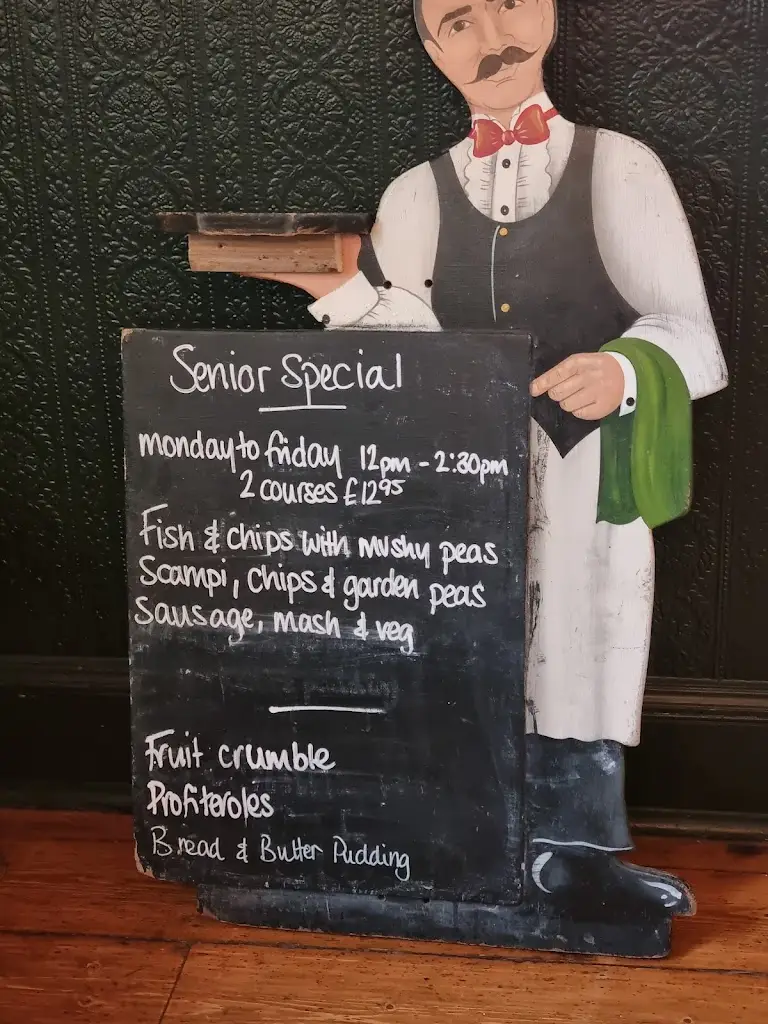 Senior Special
monday to friday 12pm - 2:30pm
2 courses £12.95
Fish & chips with mushy peas
Scampi, chips & garden peas
Sausage, mash & veg
Fruit crumble
Profiteroles
Bread & Butter Pudding